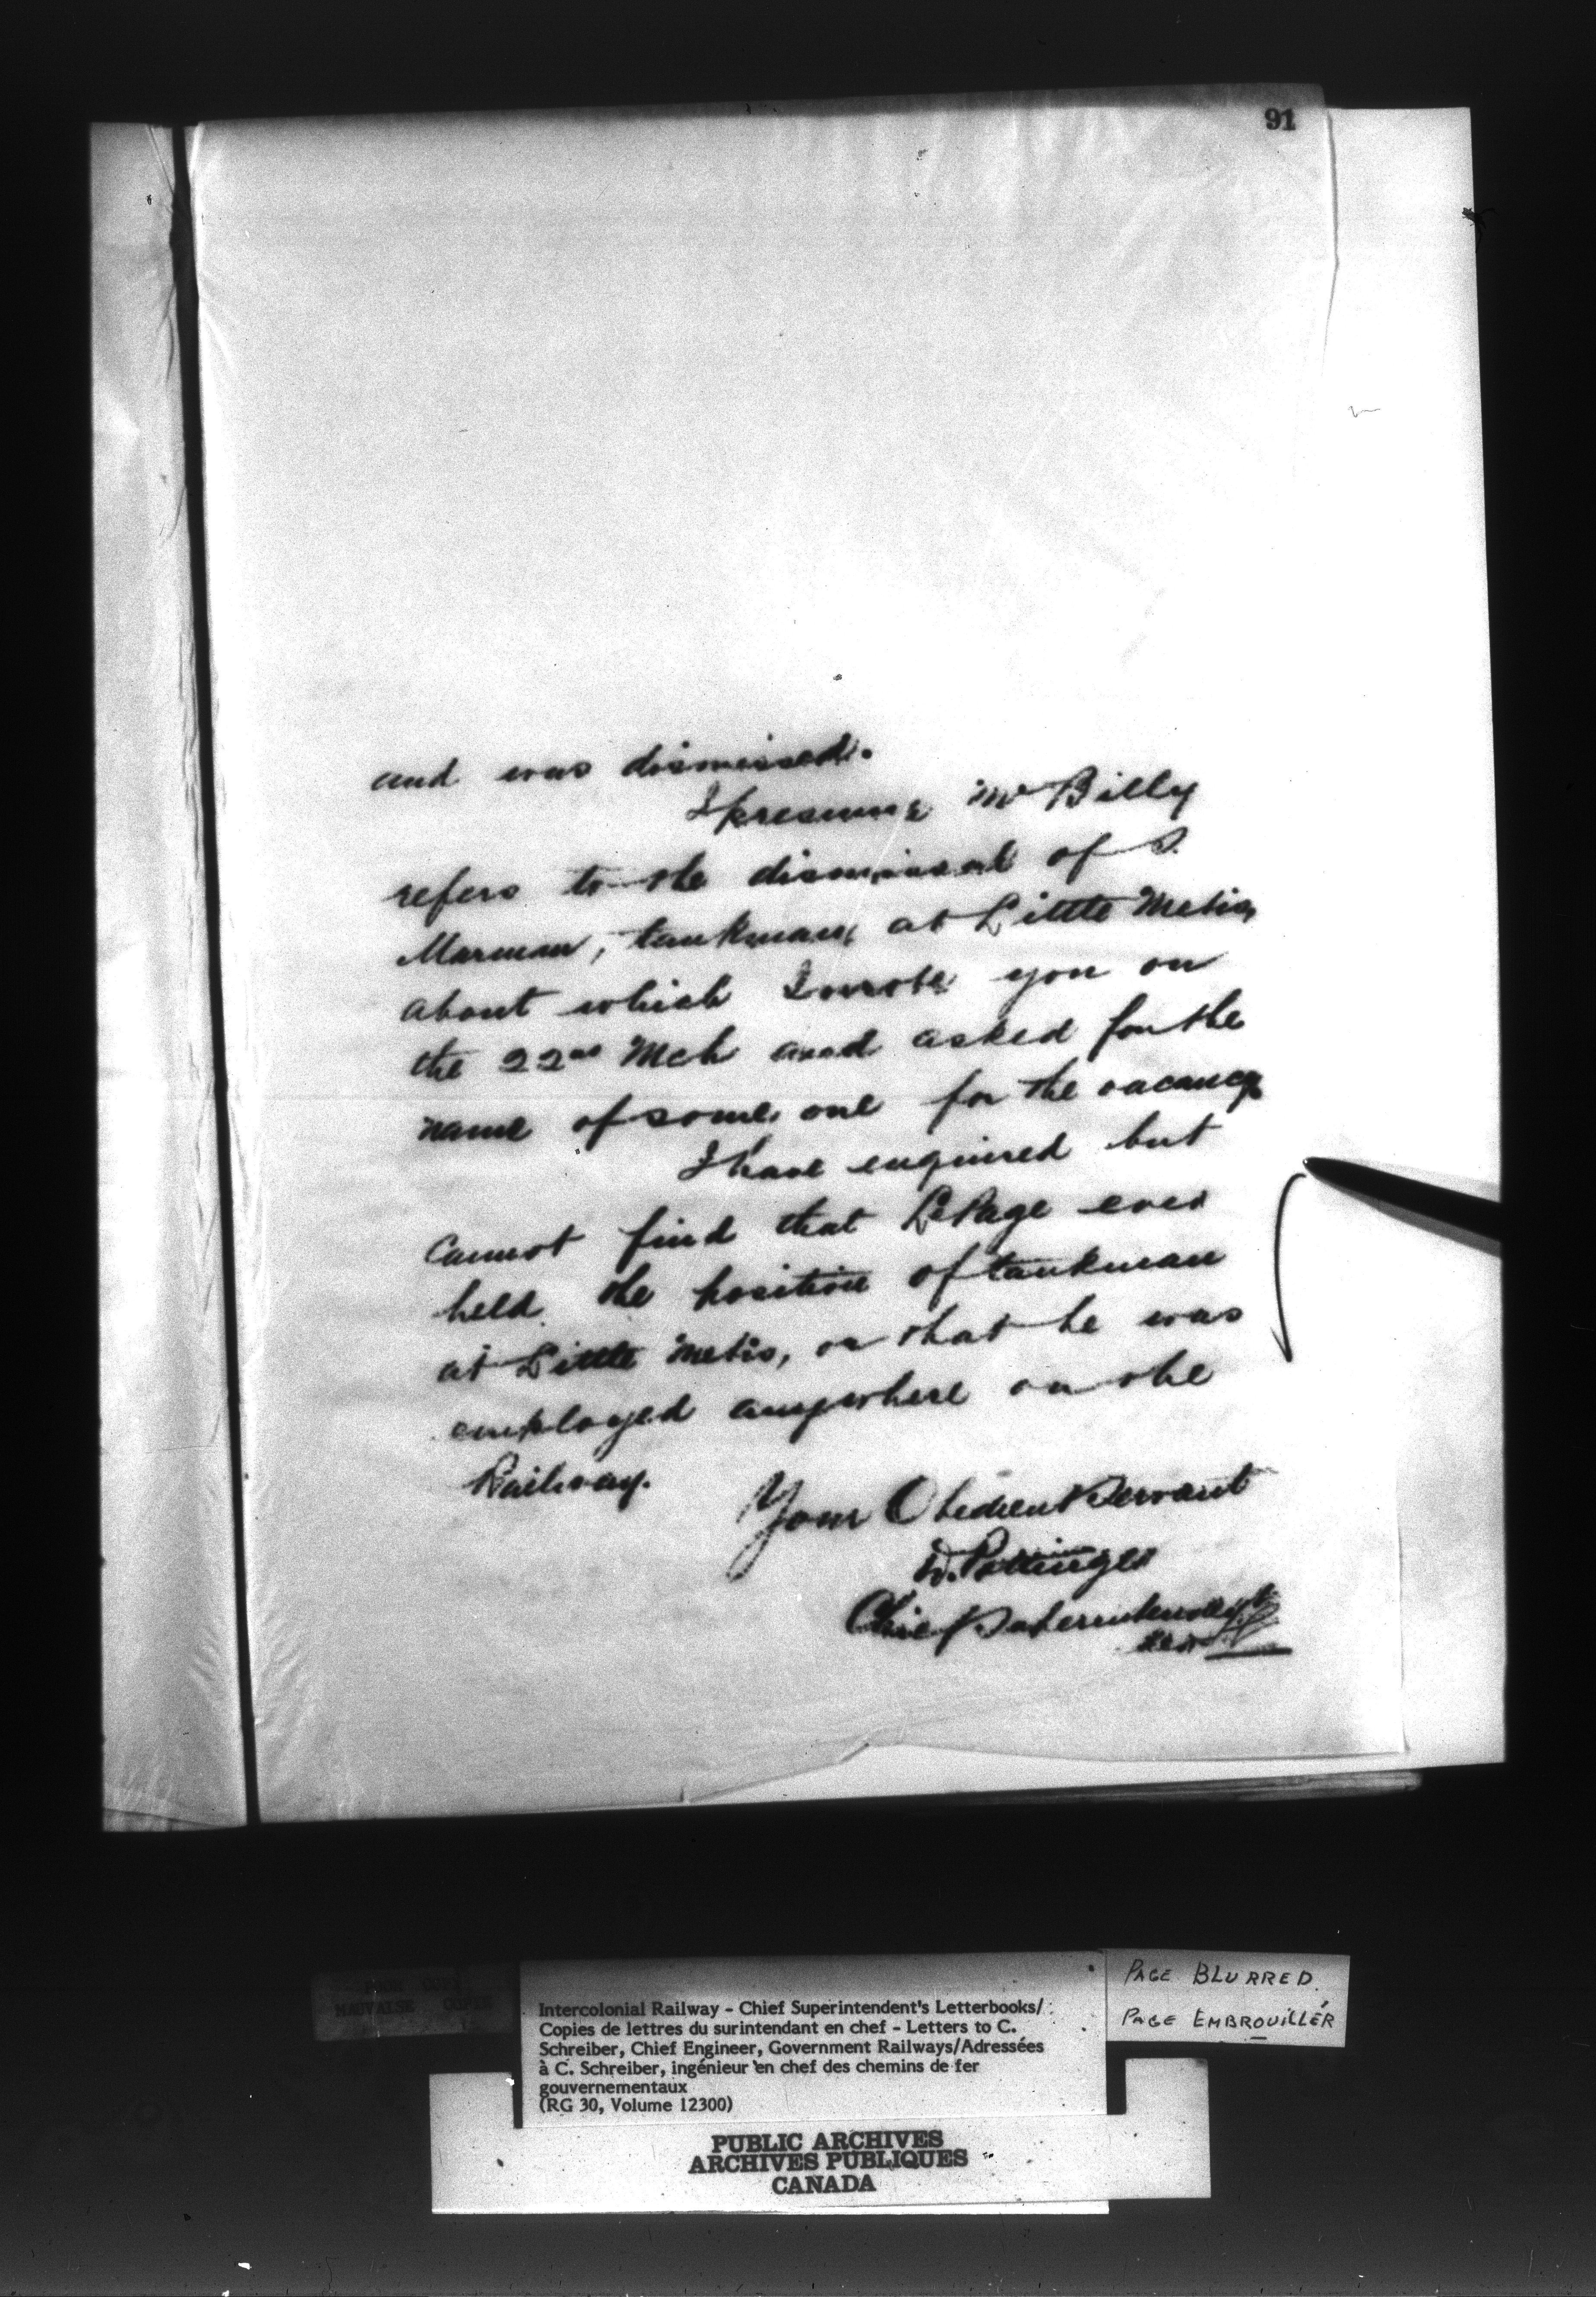 91
and was dismissed.
I presume Mr Billy
refers to the dismissal of S.
Marman, tankman, at Little Metis,
about which I wrote you on
the 22nd Mch and asked for the
name of some one for the vacancy
I have enquired but
cannot find that LePage ever
held the position of tankman
at Little Metis, or that he was
employed anywhere on the
Railway.
Your Obedient Servant
D. Pottinger
Chief Superintendent
POOR COPY
MAUVAISE COPIE
Intercolonial Railway - Chief Superintendent's Letterbooks/
Copies de lettres du surintendant en chef - Letters to C.
Schreiber, Chief Engineer, Government Railways/Adressées
à C. Schreiber, ingénieur en chef des chemins de fer
gouvernementaux
(RG 30, Volume 12300)
PAGE BLURRED
PAGE EMBROUILLÉR
PUBLIC ARCHIVES
ARCHIVES PUBLIQUES
CANADA